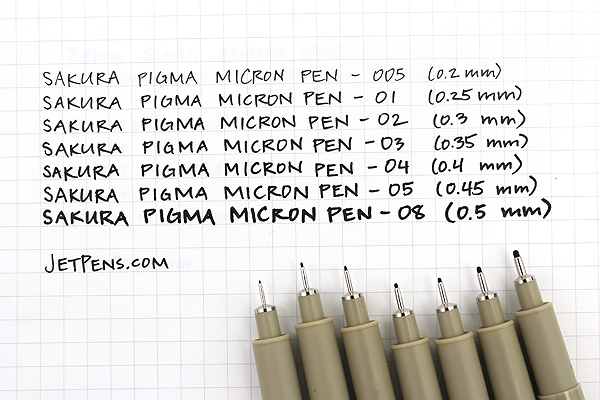 SAKURA PIGMA MICRON PEN - 005 (0.2 mm)
SAKURA PIGMA MICRON PEN - 01 (0.25 mm)
SAKURA PIGMA MICRON PEN - 02 (0.3 mm)
SAKURA PIGMA MICRON PEN - 03 (0.35 mm)
SAKURA PIGMA MICRON PEN - 04 (0.4 mm)
SAKURA PIGMA MICRON PEN - 05 (0.45 mm)
SAKURA PIGMA MICRON PEN - 08 (0.5 mm)
JETPENS.COM